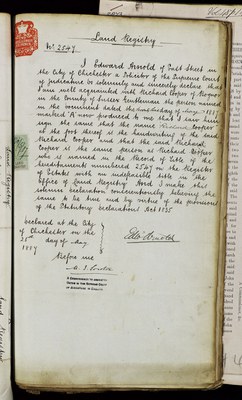 Land Registry
No. 2549.
I Edward Arnold of East Street in
the City of Chichester a Solicitor of the Supreme Court
of Judicature do solemnly and sincerely declare that
I am well acquainted with Richard Cooper of Bognor
in the County of Sussex Gentleman the person named
in the document dated the day of May 1887
marked A now produced to me that I saw him
sign the same that the name Richard Cooper
at the foot thereof is the handwriting of the said
Richard Cooper and that the said Richard
Cooper is the same person as Richard Cooper
who is named in the Record of Title of the
hereditaments numbered 2549 on the Register
of Estates with an indefeasible title in the
Office of Land Registry And I make this
solemn declaration conscientiously believing the
same to be true and by virtue of the provisions
of the Statutory Declarations Act 1835
Declared at the City
of Chichester on the
25th day of May
1887
Edw Arnold
Before me
A Commissioner to administer
Oaths in the Supreme Court
of Judicature in England
Land Registry